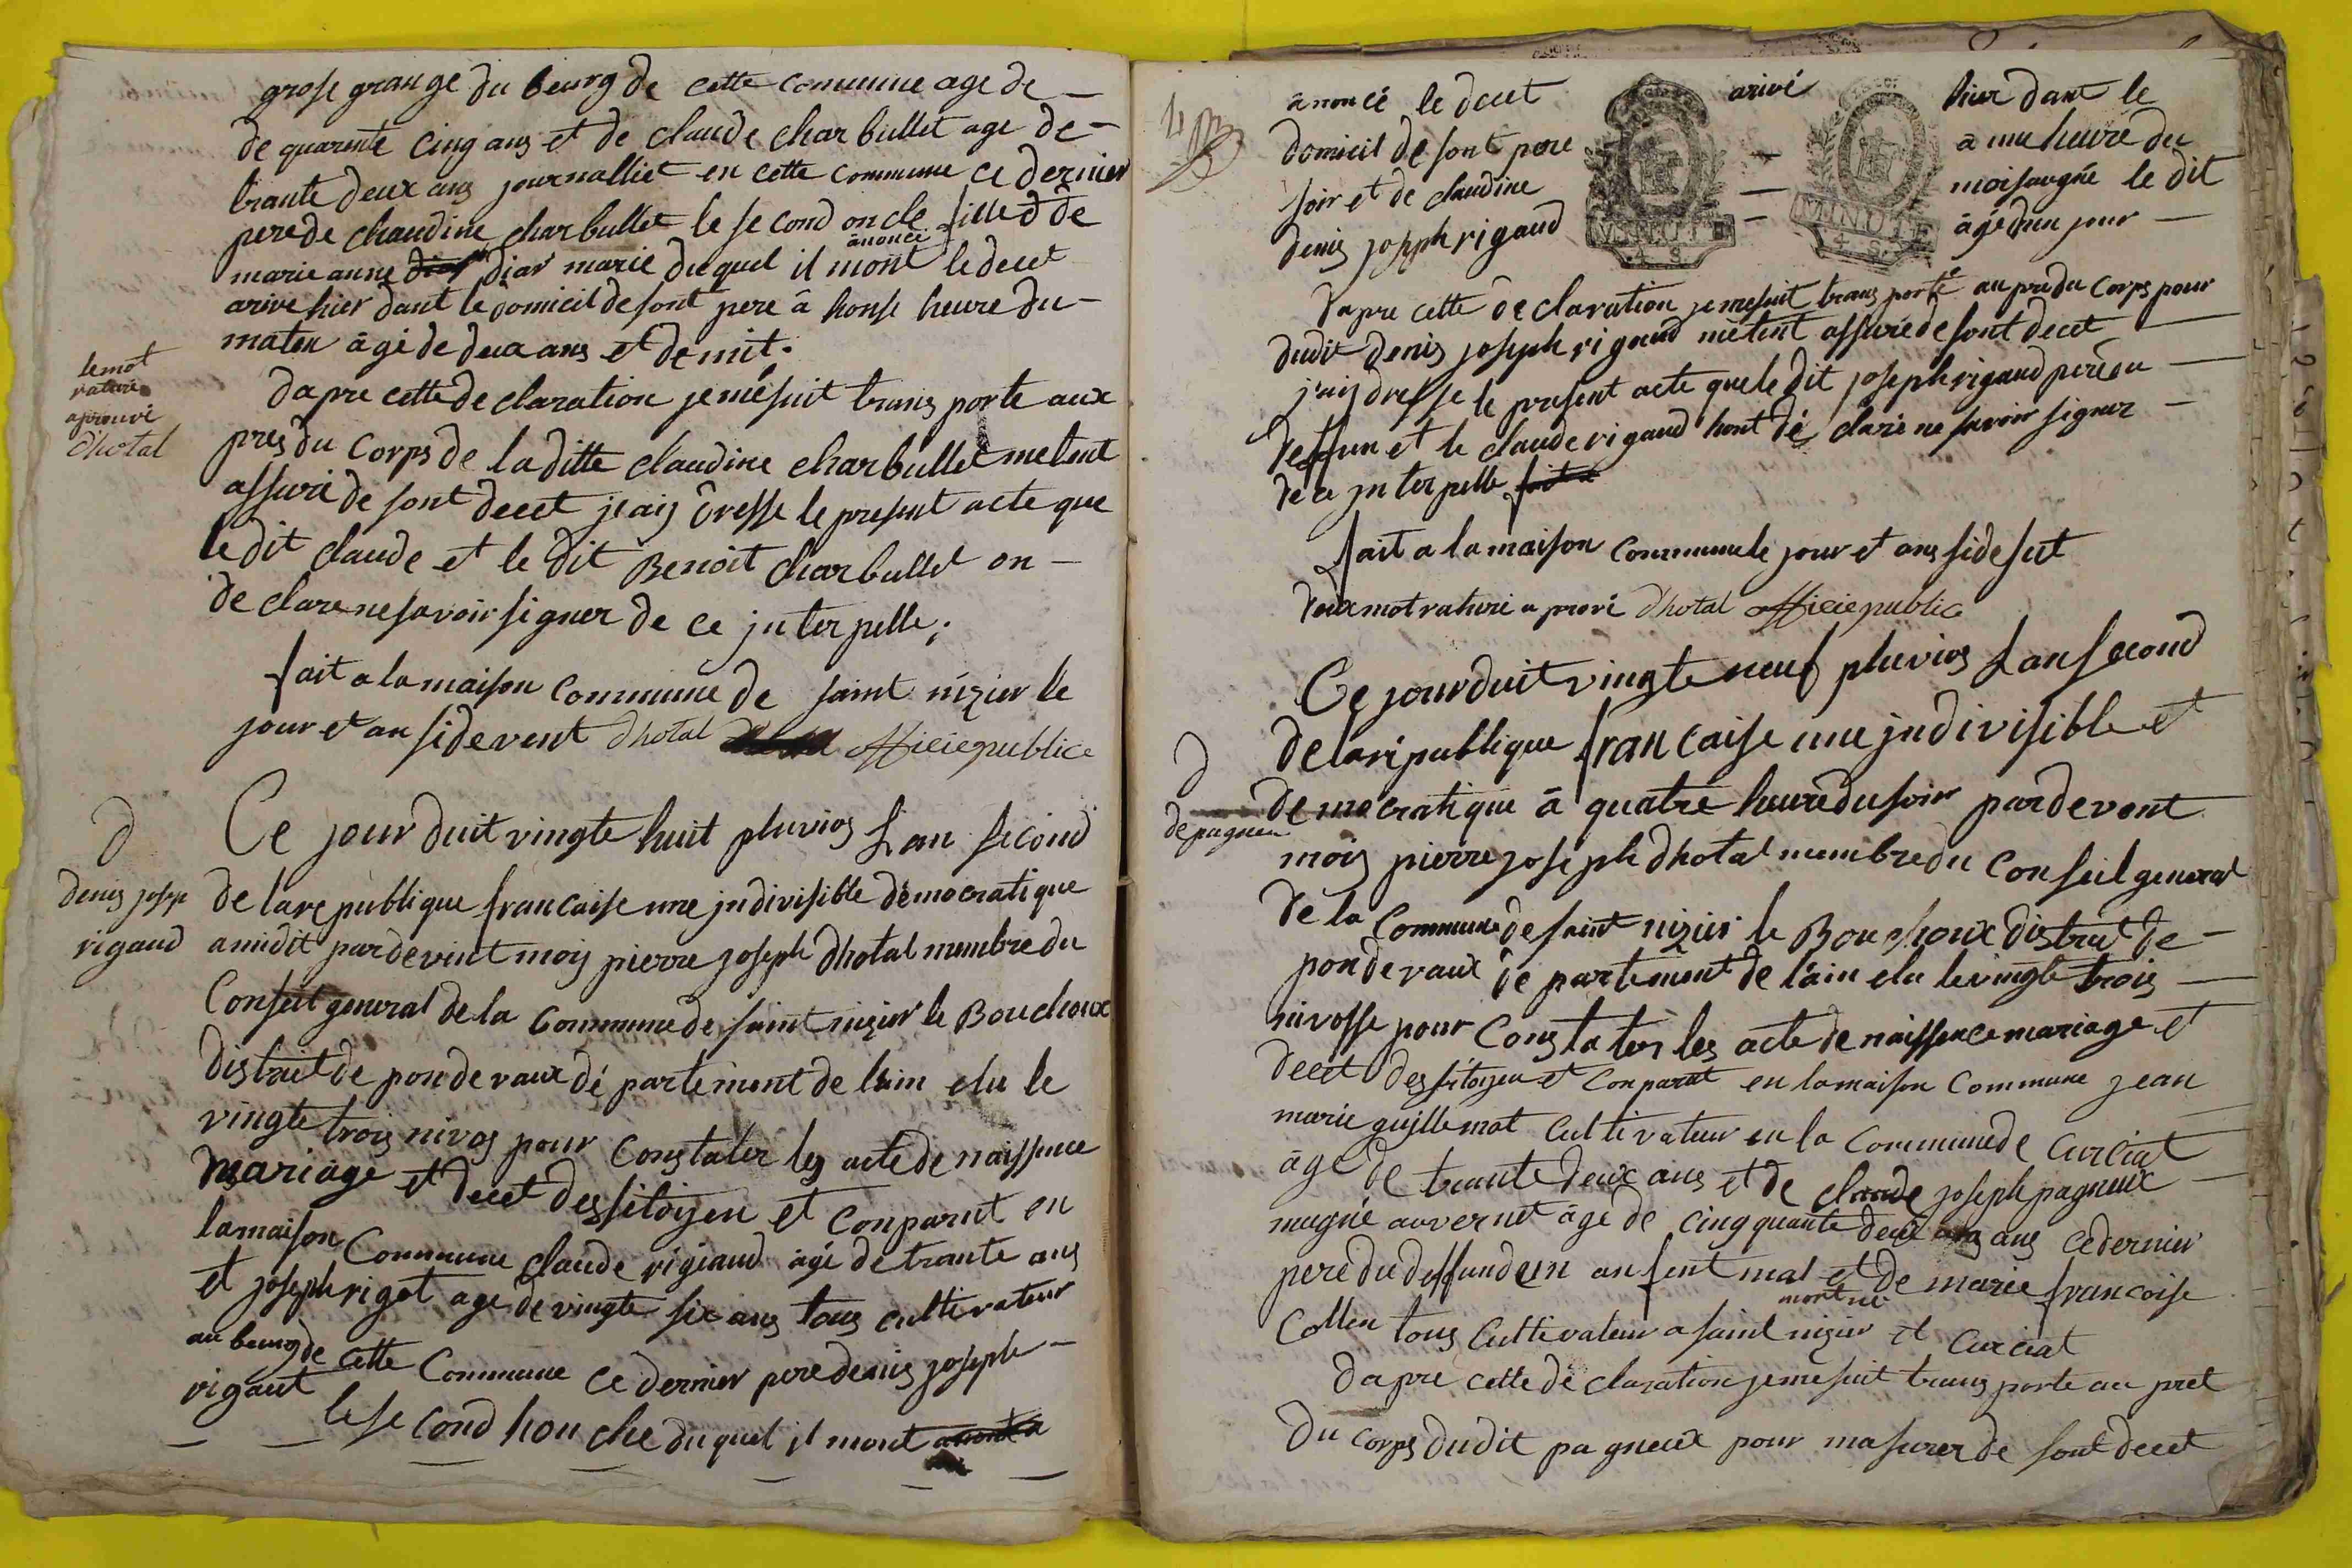 grose grange du bourg de cette comunne age de
de quarente cinq ans et de claude charbullet age de
trante deux ans journalliet en cette commune ce dernier
pere de claudine charbullet le second oncle fille d de
anoncé
marie anne diar marie duquel il mont le decet
arive hier dant le domicil de sont pere à honse heure du
maten âgé de deux ans et demit.
le mot
rature
aprouvé
d'hotal
dapre cette declaration je mesuit trans porte aux
pres du corps de laditte claudine charbullet metent
assuré de sont decet jeaij dresse le present acte que
le dit claude et le dit Benoit charbullet on
de clare ne savoir signer de ce jnterpelle;
fait a la maison commune de saint nizier le
jour et an sidevent dhotal officie publice
D
denis josep
rigaud
Ce jour duit vingte huit pluvios Lan second
de lare publique francaise une jndivisible démocratique
a midit pardevent mois pierre joseph dhotal membre du
Conseil general de la Commune de saint nizier le Bouchoux
distrait de pondevaux dé partement de lain elu le
vingte trois nivos pour constater les acte de naissence
mariage et decet des sitoyen et conparut en
la maison Commune claude rigeaud âgé de trante ans
et joseph rigot age de vingte six ans tous cultivateur
au bourg de cette Commune ce dernier pere denis joseph
rigaut le second honcle duquel il mont
anoncé le decet arivé hier dant le
domicil de sont pere à une heure du
soir et de claudine moisaugné le dit
denis joseph rigaud âgé dun jour
MINUTE
4 S.
MINUTE
4 S.
dapre cette de claration je mesuit trans porté au pré du corps pour
dudit denis joseph rigaud metent assuré de sont decet
j'aij dresse le present acte que le dit joseph rigaud pere du
deffun et le claude rigaud hont dé claré ne savoir signer
de ce jnterpelle fait a
fait a la maison commune le jour et ans side set
deux mot raturé a prové dhotal officie public
Ce jour duit vingte neuf pluvios Lan second
de la republique francaise une jndivisible et
D
depagneu
democratique à quatre heure du soir pardevent
mois pierre joseph dhotal membre du conseil general
de la Commune de saint nizier le Bouchoux distrait de
pondevaux de partement de lain elu le vingte trois
nivosse pour constater les acte de naissence mariage et
decet des sitoyen et conparut en la maison commune jean
marie guillemot cultivateur en la commune de curciat
âgé de trante deux ans et de claude joseph pagneux
mugné auvernet âgé de cinq quante deux ans ce dernier
pere du deffund un anfent mal et de marie francoise
mort né
Collin tous cultivateur a saint nizier et curciat
dapré cette dé claration je mesuit trans porte au pret
du corps dudit pagneux pour masurer de sont decet